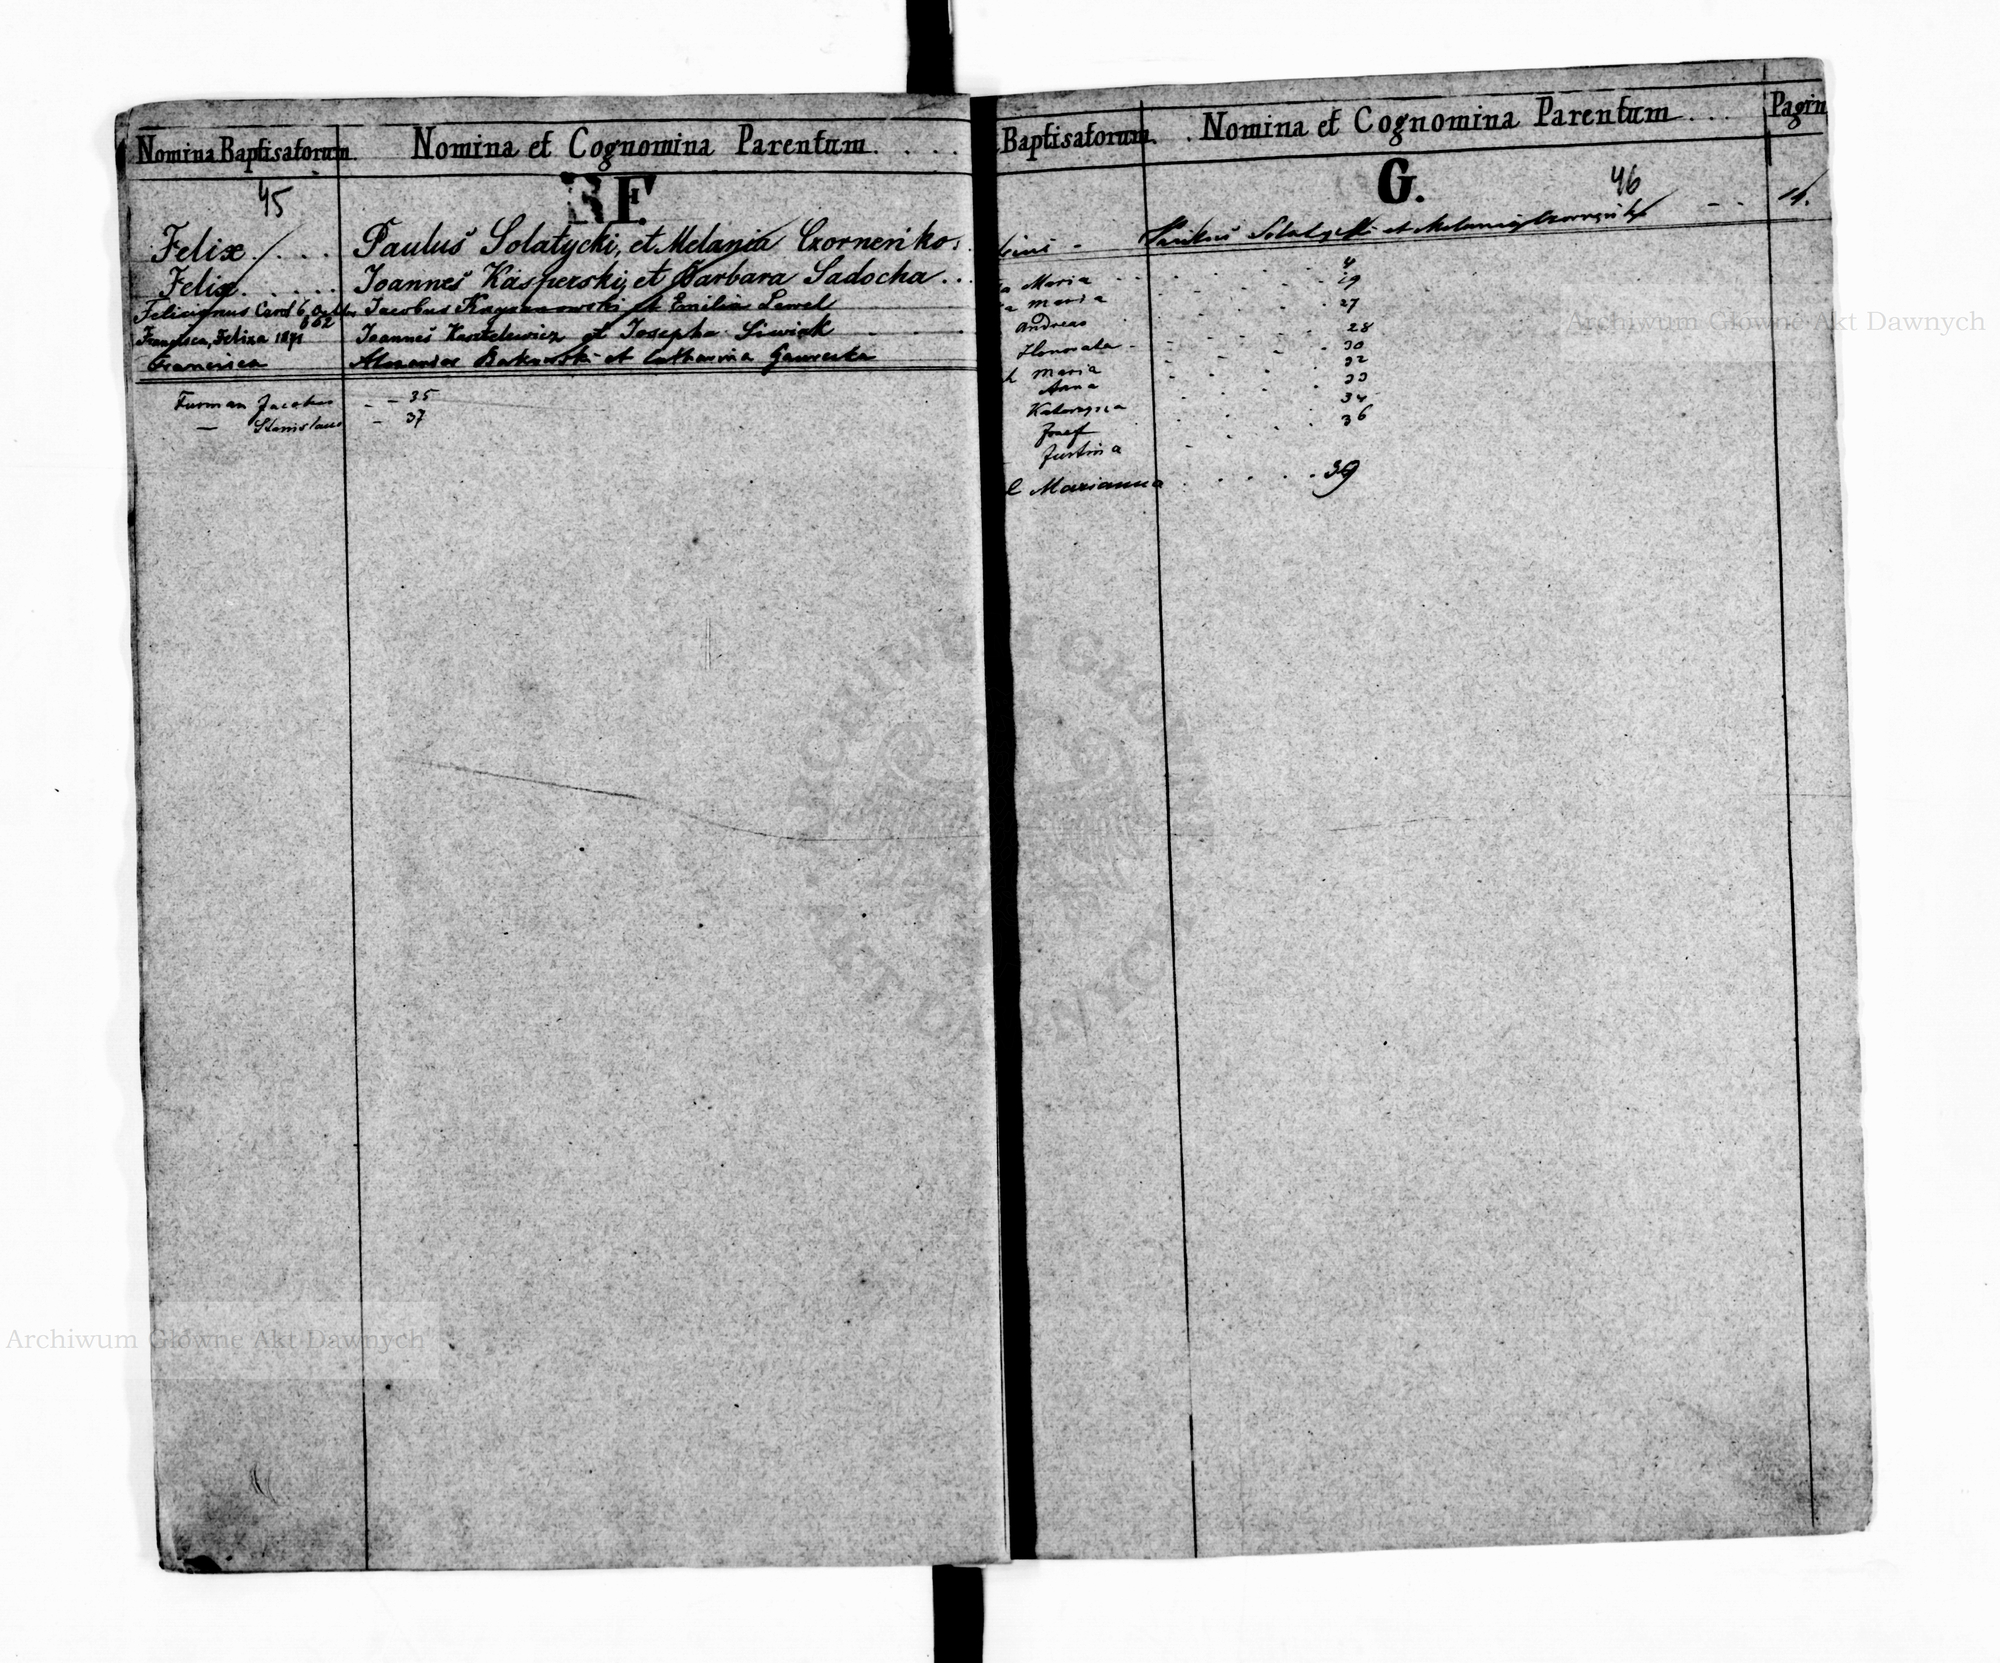 Nomina Baptisatorum. Nomina et Cognomina Parentum. . . .
45 F.
Felix . . . . Paulus Solatycki, et Melania Czorneńko.
Felix. . . . . . Joannes Kasperski, et Barbara Sadocha . . .
Felicianus Carol 6 Jacobus et Emilia Lewel
852
Francisca, Felixa 1871 Joannes et Josepha Siwiak
Francisca et Catharina Gawecka
Furman Jacobus - - 35
— Stanislaus - 37
Baptisatorum. . Nomina et Cognomina Parentum . . . Pagin
G. 46
Solatycki et Melania - - 11.
Maria 4
Maria 19
Andreas 27
Honorata - 28
Maria 30
Anna 32
Katarzyna 33
Josef 34
Justina 36
l Marianna . . . . . 39
Archiwum Główne Akt Dawnych
ARCHIWUM GŁÓWNE AKT DAWNYCH
Archiwum Główne Akt Dawnych